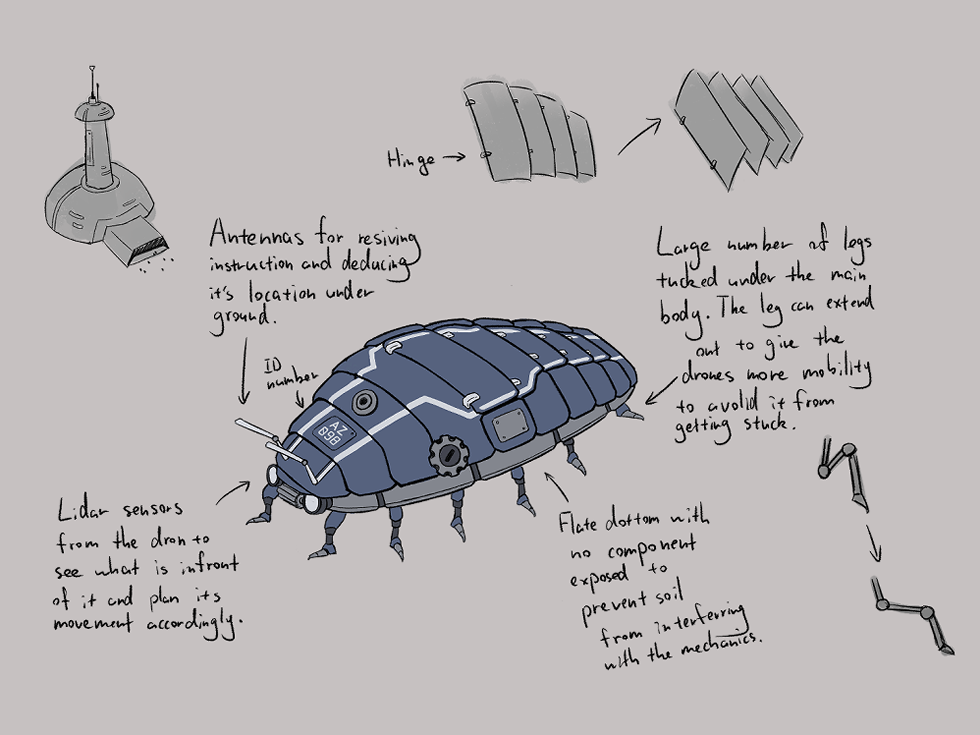 Hinge
Antennas for resiving
instruction and deducing
it's location under
ground.
ID
number
AZ
098
Large number of legs
tucked under the main
body. The leg can extend
out to give the
drones more mobility
to avolid it from
getting stuck.
Lidar sensors
from the dron to
see what is infront
of it and plan its
movement accordingly.
Flate dottom with
no component
exposed to
prevent soil
from interferring
with the mechanics.